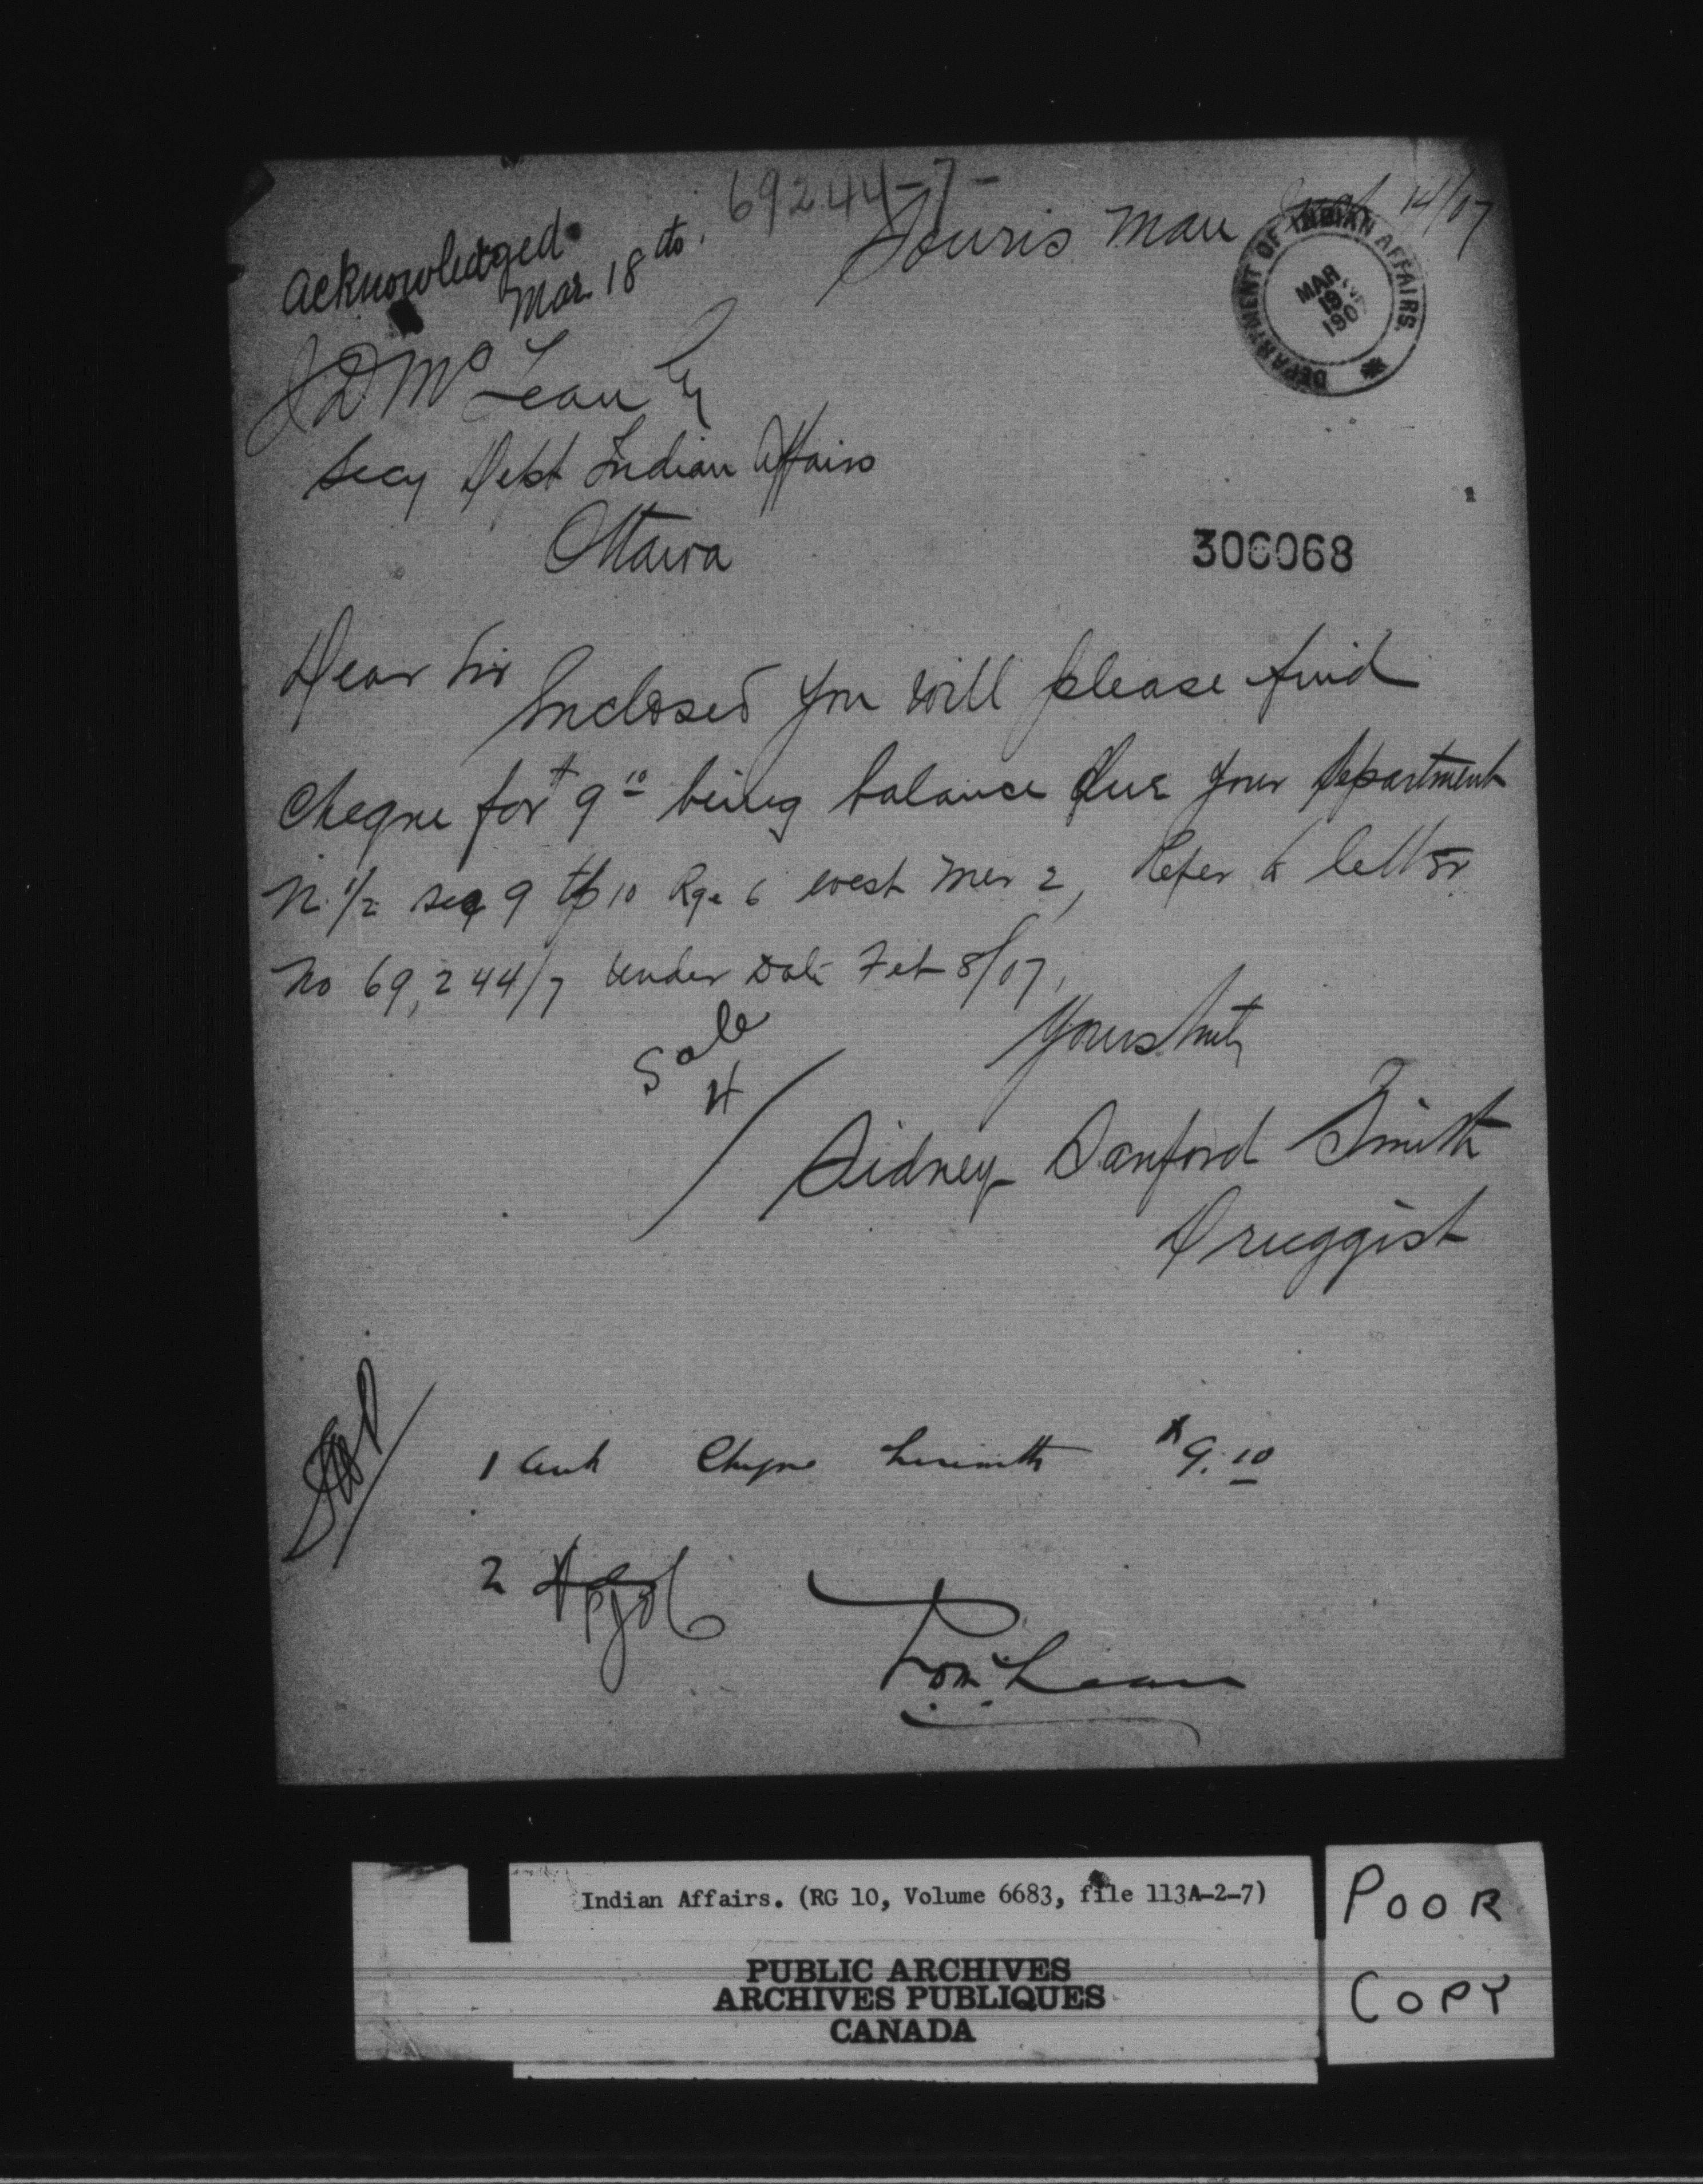 69244-7-
Souris Man 14/07
Acknowledged
Mar. 18th
DEPARTMENT OF INDIAN AFFAIRS.
MAR
19
190
J D McLean Esq
Secy Dept Indian Affairs
Ottawa
306068
Dear Sir
Inclosed you will please find
Cheque for $9 10 being balance due your Department
N. 1/2 sec 9 tp 10 Rge 6 west Mer 2, Refer to letter
No 69,244/7 under Date Feb 8/07,
Yours truly
Sale
4
Sidney Sanford Smith
Druggist
1 Cheque $9.10
2
McLean
Indian Affairs. (RG 10, Volume 6683, file 113A-2-7)
PUBLIC ARCHIVES
ARCHIVES PUBLIQUES
CANADA
POOR
COPY